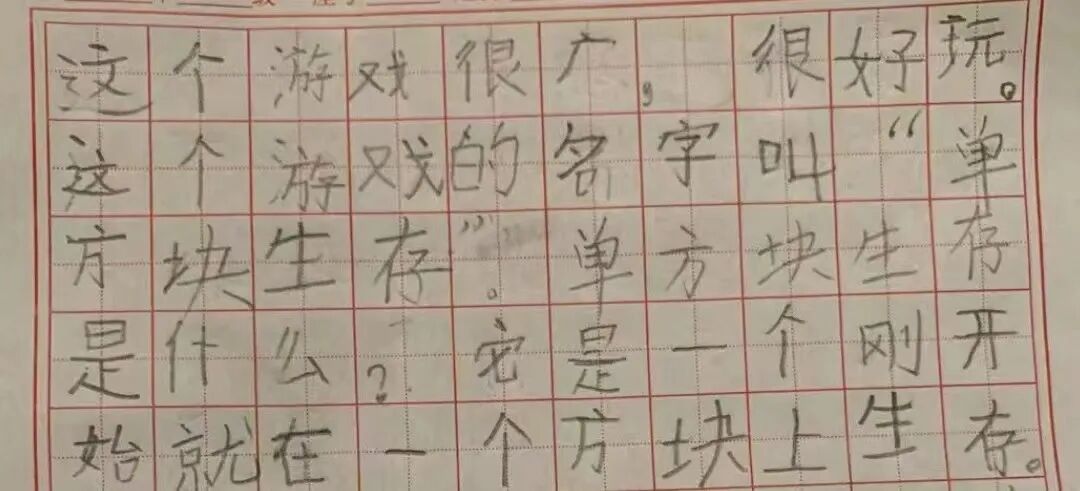 这个游戏很广，很好玩。
这个游戏的名字叫“单
方块生存”。单方块生存
是什么？它是一个刚开
始就在一个方块上生存。